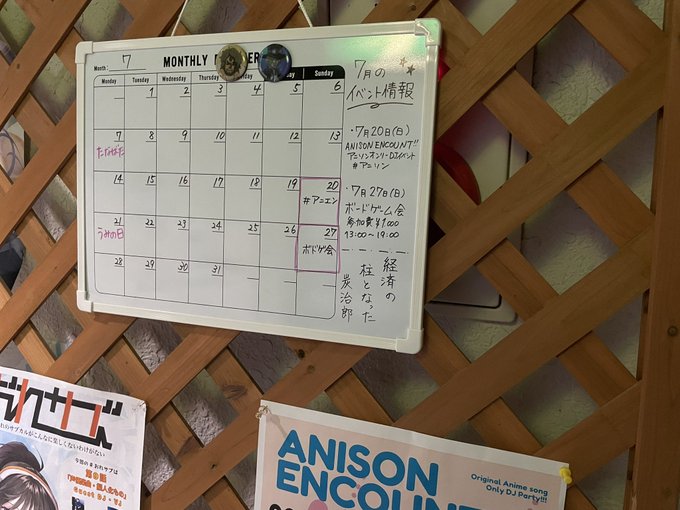 Month: 7
MONTHLY
Monday Tuesday Wednesday Thursday Sunday
1 2 3 4 5 6
7 8 9 10 11 12 13
たなばた
14 15 16 17 18 19 20
#アニエン
21 22 23 24 25 26 27
うみの日 ボドゲ会
28 29 30 31
7月の
イベント情報
・7月20日(日)
ANISON ENCOUNT!!
アニソンオンリーDJイベント
#アニソン
・7月27日(日)
ボードゲーム会
参加費¥1,000
13:00〜19:00
経済の
柱となった
炭治郎
れサブ
れのサブカルがこんなに楽しくないわけがない
今回のまおれサブは
Guest DJ・VJ
ANISON
ENCOUNT
Original Anime song
Only DJ Party!!!